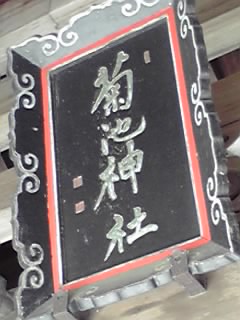 菊池神社